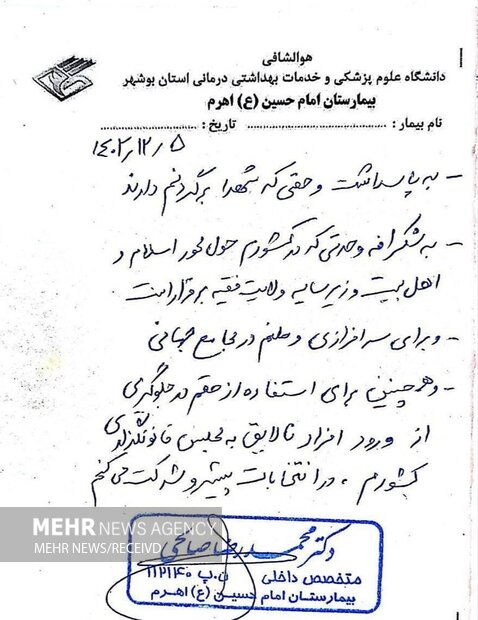 هوالشافی
دانشگاه علوم پزشکی و خدمات بهداشتی درمانی استان بوشهر
بیمارستان امام حسین (ع) اهرم
نام بیمار : ........................ تاریخ : ........................
۱۴۰۲/۱۲/۵
- به پاسداشت و حقی که شهدا برگردنم دارند
- به شکرانه وحدتی که در کشورم حول محور اسلام و
اهل بیت و زیر سایه ولایت فقیه برقرار است
- و برای سرافرازی وطنم در مجامع جهانی
- و همچنین برای استفاده از حقم در جلوگیری
از ورود افراد نالایق به مجلس قانونگذاری
کشورم ، در انتخابات پیشرو شرکت می کنم
MEHR NEWS AGENCY
MEHR NEWS/RECEIVD
دکتر محمدرضا صالحی
متخصص داخلی ن.پ ۱۱۲۱۴۰
بیمارستان امام حسین (ع) اهرم